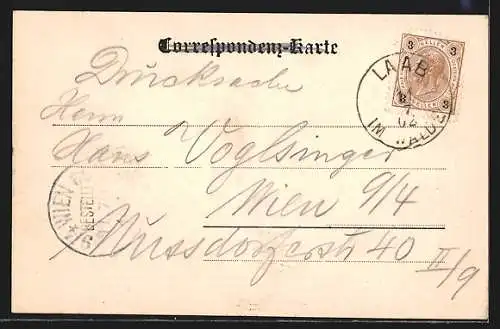 Correspondenz-Karte
3 HELLER 3
3 HELLER 3
LAAB
02
IM WALDE
Drucksache
Herrn
Hans Voglsinger
Wien 9/4
Nussdorferstr 40 II/9
WIEN
BESTELLT